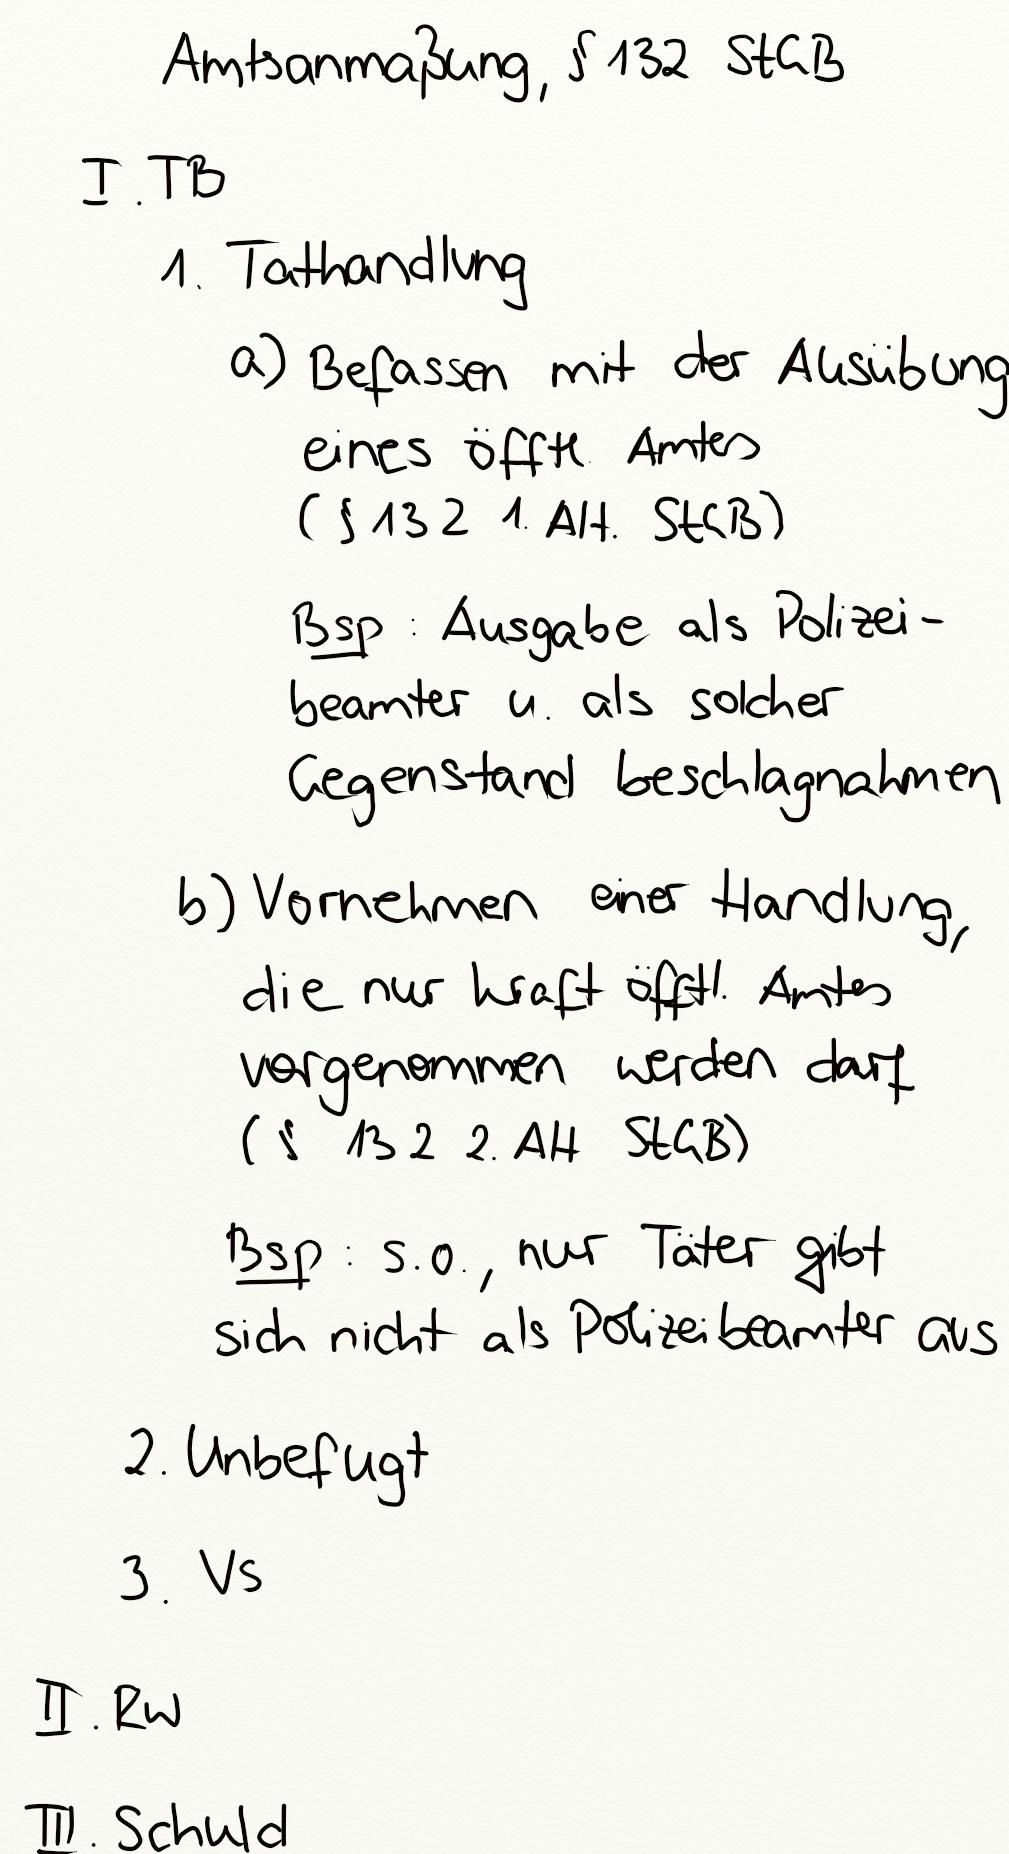 Amtsanmaßung, § 132 StGB
I. TB
1. Tathandlung
a) Befassen mit der Ausübung
eines öfftl. Amtes
(§ 132 1. Alt. StGB)
Bsp: Ausgabe als Polizei-
beamter u. als solcher
Gegenstand beschlagnahmen
b) Vornehmen einer Handlung,
die nur kraft öfftl. Amtes
vorgenommen werden darf
(§ 132 2. Alt StGB)
Bsp: s.o., nur Täter gibt
sich nicht als Polizeibeamter aus
2. Unbefugt
3. Vs
II. RW
III. Schuld